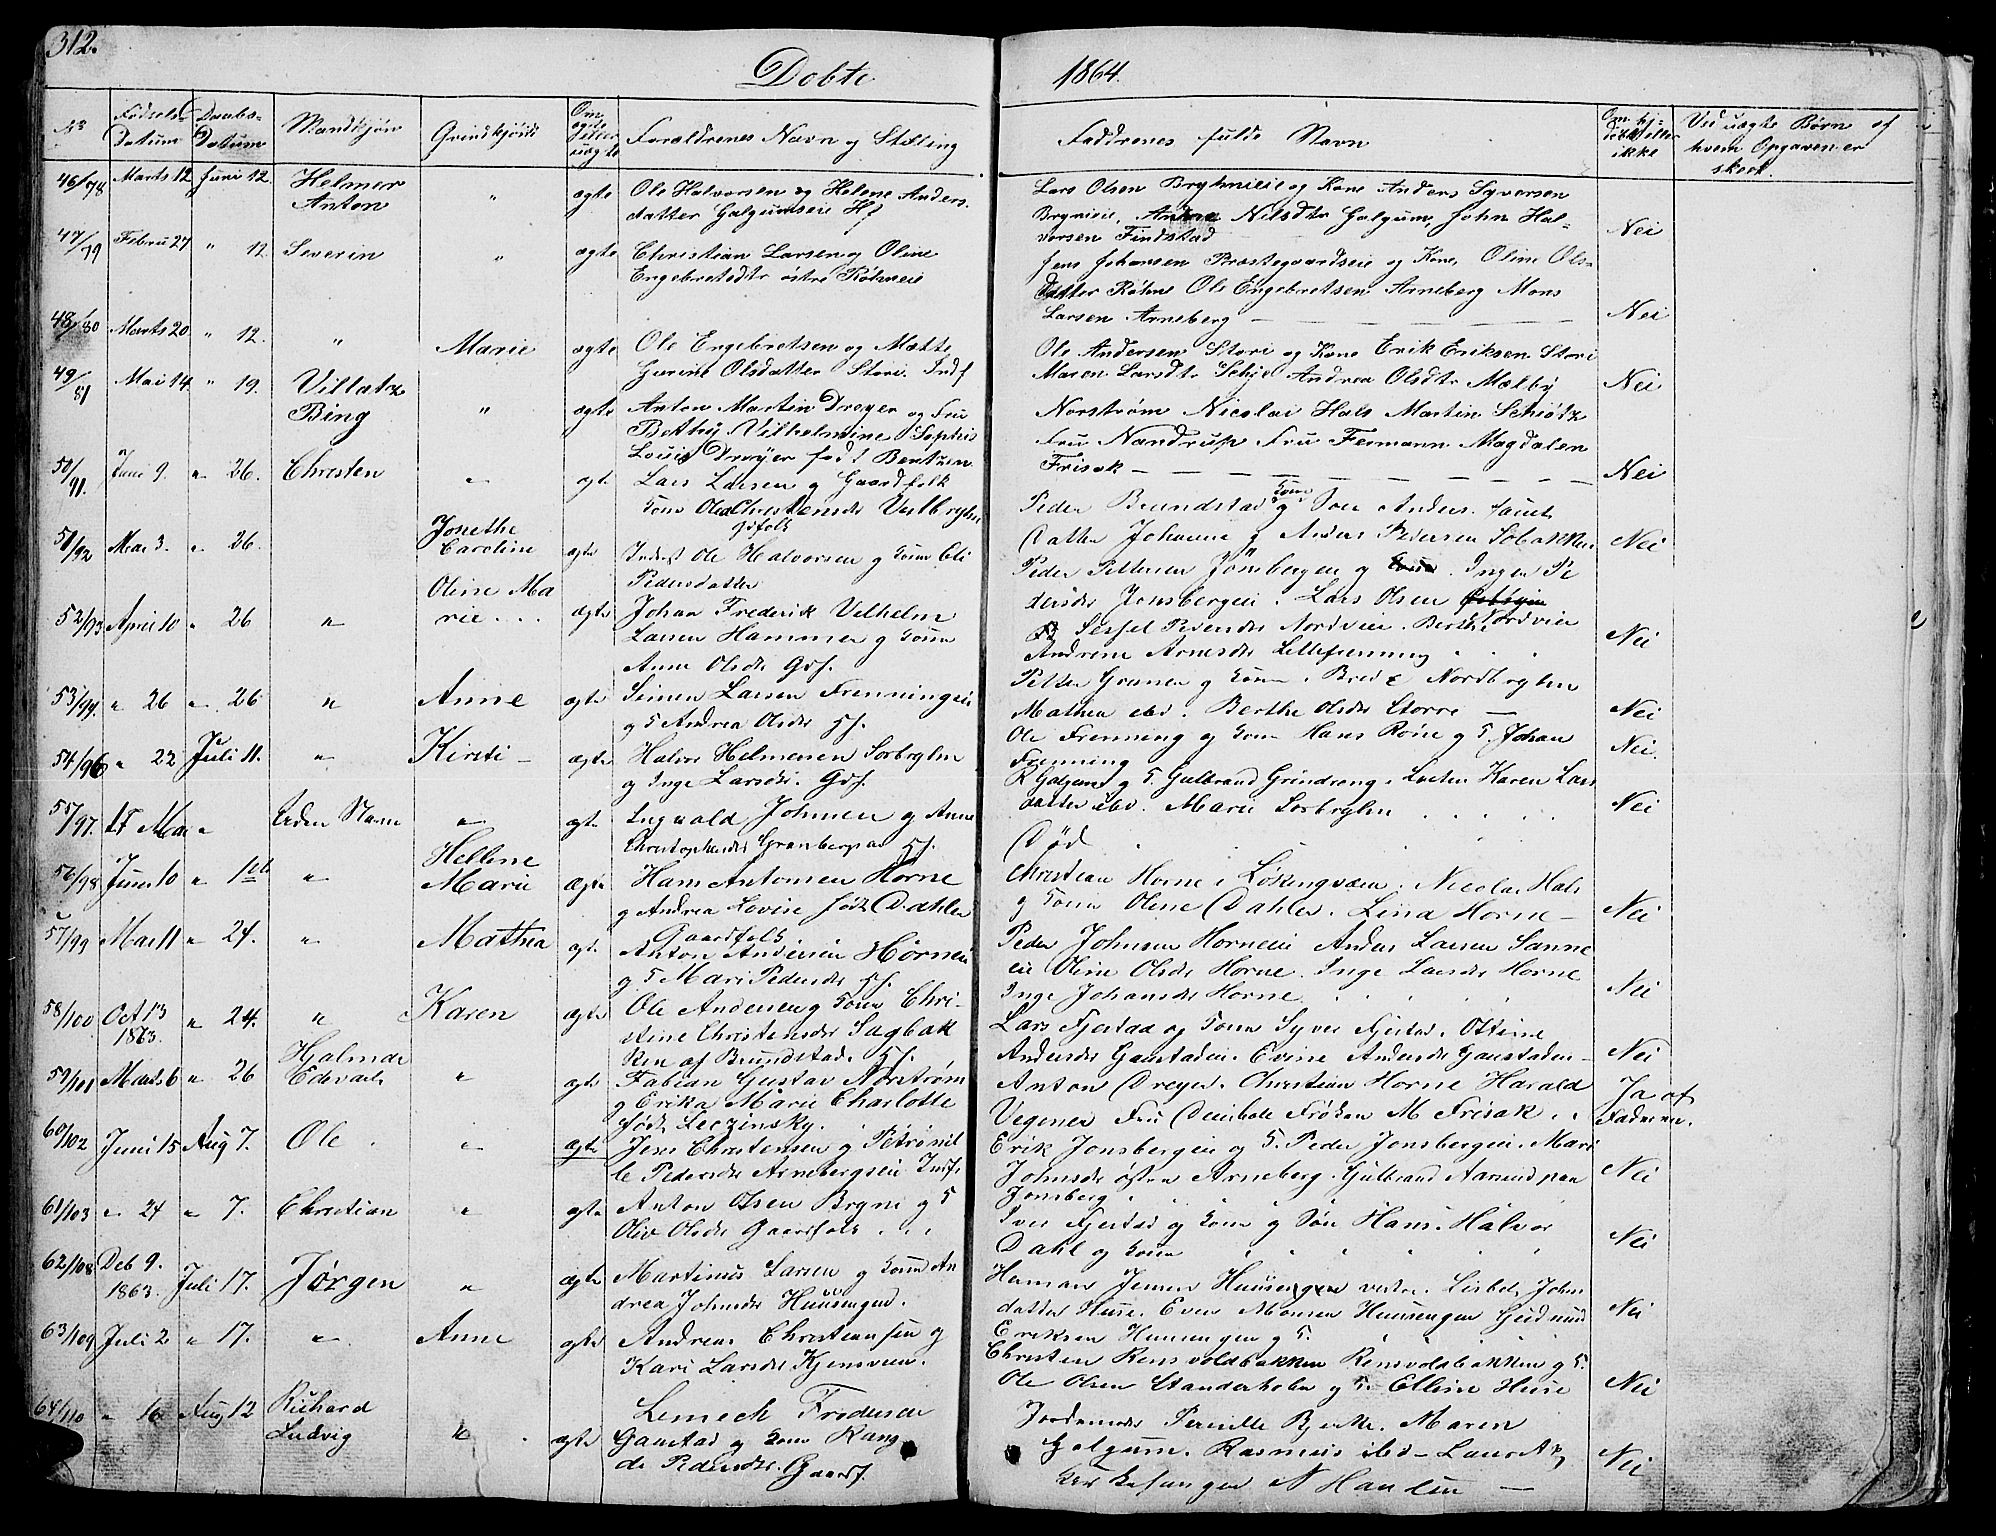 312.
Döbte 1864.
No Fødsels Datum Daabs Datum Mandkjön Qvindkjönd Om ægte eller uægte Forældrenes Navn og Stilling
Faddrenes fulde Navn Om hj: døbt eller ikke Ved uægte Børn af hvem Opgaven er skeet.
46/78 Marts 12 Juni 12. Helmer Anton " ægte Ole Halvorsen og Helene Anders
datter Galgumseie Hf
Lars Olsen Bryhnieie og Kone Anders Syversen
Brynieie, Andrea Nilsdtr Galgum, John Hal-
vorsen Findstad Nei
47/79 Febru 27 " 12. Severin " ægte Christian Larsen og Oline
Engebretsdtr østre Röhneie
Jens Johansen Præstegaardseie og Kone, Oline Ols-
datter Röhne Ole Engebretsen Arneberg Mons
Larsen Arneberg — Nei
48/80 Marts 20 " 12. " Marie ægte Ole Engebretsen og Mætte
Gurine Olsdatter Stori. Indf
Ole Andersen Stori og Kone Erik Eriksen Stori
Maren Larsdtr Andrea Olsdtr Mælby Nei
49/81 Mai 14. " 19. Villatz Bing " ægte Anton Martin Dreyer og Fru
Betthy Vilhelmine Sophie
Louise Dreyer født Bertsen
Norstrøm Nicolai Hals Martin Schiøtz
Fru Nandrup Fru Fermann Magdalen
Frisak — Nei
50/91. Juni 9. " 26. Christen " ægte Lars Larsen og Gaardfolk
Kone Olea Christensdr Vestbryhn
Peder Brundstad og Kone Iver Anders.
Datter Johanne og Anders Pedersen Sobakken Nei
51/92 Mai 3. " 26. Jonethe Caroline ægte Inderst Ole Halvorsen og Kone Oli
Pedersdatter
Peder Pettersen Jönsbergen og Inger Pe
dersdr Jonsbergeie. Lars Olsen
52/93 April 10 " 26 " Oline Ma
rie . . . ægte Johan Frederik Vilhelm
Larsen Hammer og Kone
Anne Olsdr Gdf.
Sessel Pedersdr Nordvieie. Berthe
Andrine Arnesdr Lillefrenning Nei
53/94. " 26 " 26 " Anne ægte Simen Larsen Frenningeie
og K Andrea Olsdr Hf.
Petter Granen og Kone. Brede Nordbryhn
Mathea ibd. Berthe Olsdr Storre — Nei
54/96 " 22 Juli 11. " Kirsti — ægte Halvor Helmersen Sorbryhn
og Inge Larsdr. Gdf.
Ole Frenning og Kone Hans Röne og K. Johan
Frenning Nei.
55/97. 15 Mai " Uden Navn " ægte Ingvald Johnsen og Anne
Christophersdr Granbergsæ Hf.
R Galgum og K Gulbrand Grindvang i Løiten Karen Lars
datter ibd. Marie Sorbryhn Nei
Död
56/98 Juni 10 " 1 " Hellene
Marie ægte Hans Antonsen Horne
og Andrea Lovise född Dahlen
Gaardfolk
Christian Horne i Løkengveien. Nicolai Hals
og Kone Oline Dahlen. Lina Horne — Nei
57/99 Mai 11 " 24. " Mathea ægt. Anton Andersen Hørneie
og K Mari Pedersdr Hf.
Peder Johnsen Horneeie Anders Larsen Sanne
eie Oline Olsdr Horne. Inge Larsdr Horne
Inge Johansdr Horne Nei
58/100 Oct 13
1863. " 24. " Karen ægte Ole Andersen og Kone Chri-
stine Christensdr Sagbak
ken af Brundstad. Hf.
Lars Fjestad og Kone Syver Fjestad. Ottine
Andersdr Gaustadeie. Evine Andersdr Gaustadeie — Nei
59/101 Marts 6 " 26 Hjalmar
Edevart " ægte Fabian Gustav Norstrøm
og Erika Marie Charlotte
född Leczinsky.
Anton Dreyer. Christian Horne Harald
Vegener Fru Deinboll Frøken M Frisak. . Ja af
Faderen.
60/102 Juni 15 Aug 7. Ole " ægte Jens Christensen og Petronil
le Pedersdr Arnebergseie Indf.
Erik Jonsbergeie og K. Peder Jonsbergeie. Mari
Johnsdr østre Arneberg. Gulbrand Aarsrud paa
Jonsberg Nei
61/103 " 24 " 7. Christian " ægte Anton Olsen Bryni og K
Oliv Olsdr Gaardfolk . . .
Iver Fjestad og Kone og Sön Hans. Halvor
Dahl og Kone Nei
62/108 Deb 9.
1863. Juli 17. Jørgen " ægte Martinus Larsen og Kone An
drea Johnsdr Huusengen.
Herman Jensen Huusengen vestre. Lisbet John
datter Huse. Even Monsen Huusengen Gudmund
Eriksen Huusengen og K. Nei
63/109 Juli 2 " 17. " Anne ægte Andreas Christiansen og
Kari Larsdr Kjensveen.
Christen Rensvoldbakken Rensvoldbakken og K.
Ole Olsen Standerholen og K. Elline Huse Nei
64/110 " 16 Aug 12 Richard
Ludvig " ægte Lemech Frederik
Gaustad og Kone Rang
di Pedersdr. Gaardf.
Jordemor Pernille Bjerke. Maren
Galgum. Rasmus ibd — Laur
N Handlen — Nei